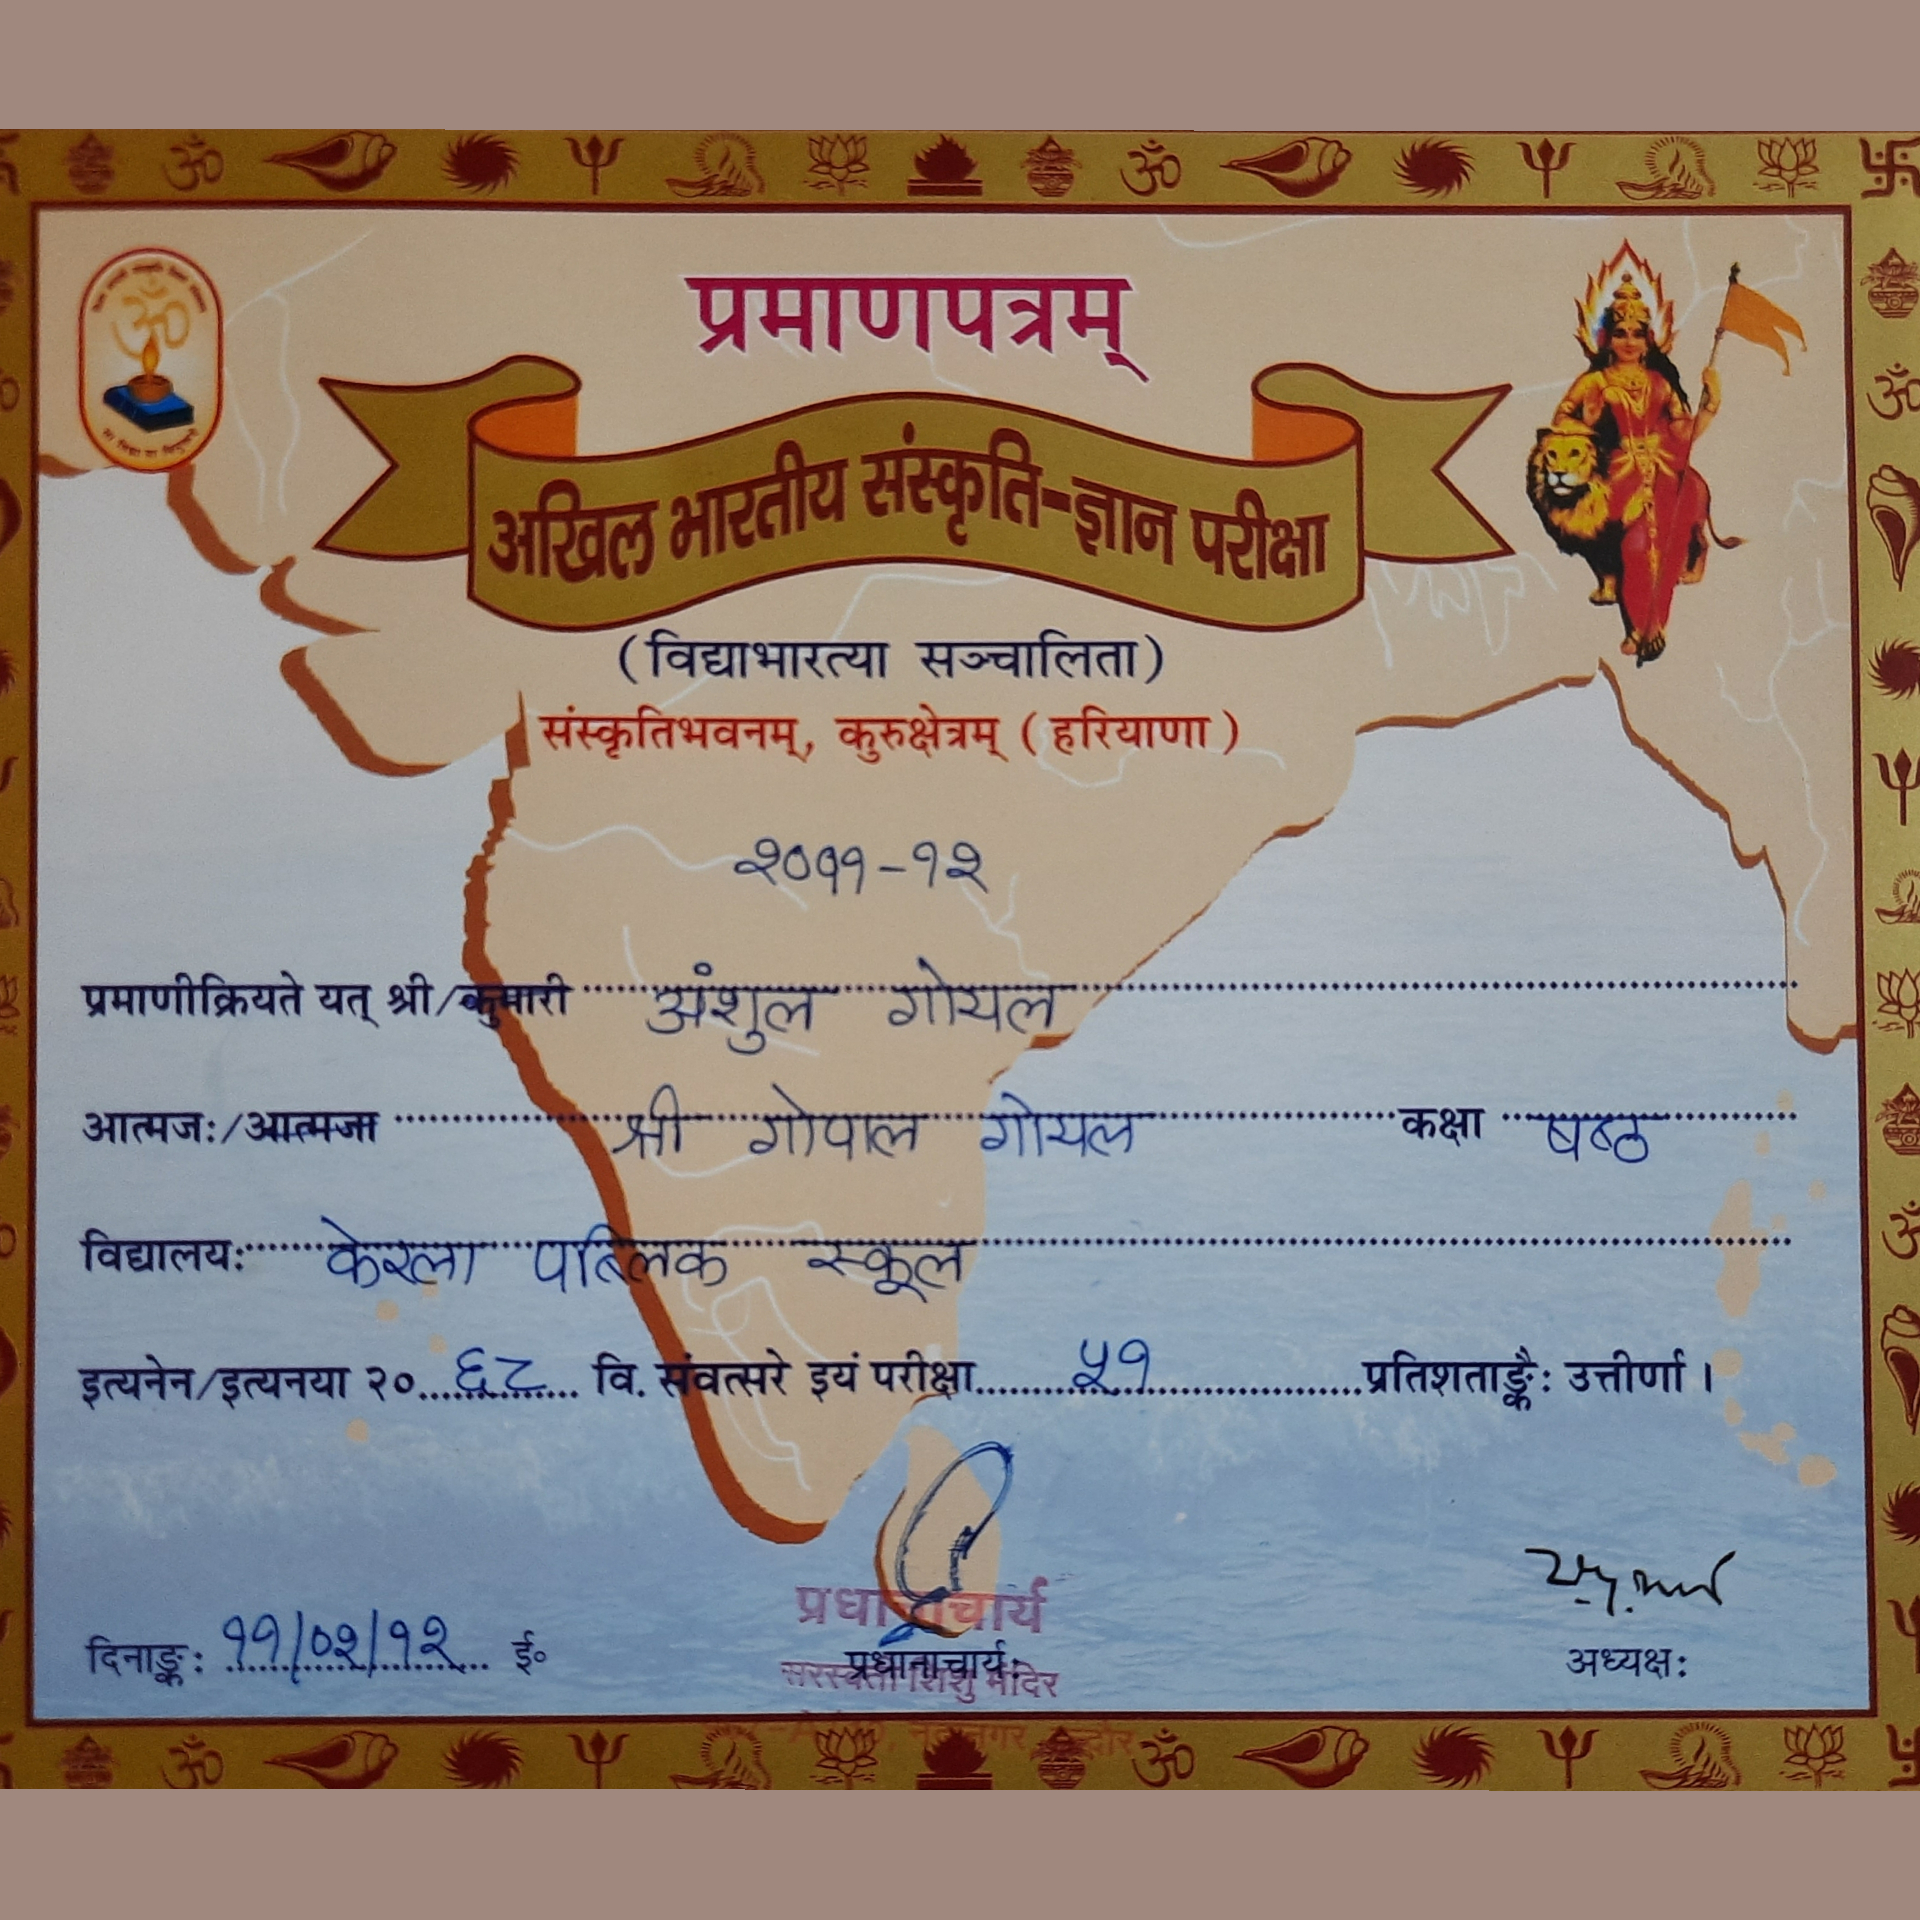 प्रमाणपत्रम्
अखिल भारतीय संस्कृति-ज्ञान परीक्षा
(विद्याभारत्या सञ्चालिता)
संस्कृतिभवनम्, कुरुक्षेत्रम् (हरियाणा)
२०११-१२
प्रमाणीक्रियते यत् श्री/कुमारी अंशुल गोयल
आत्मजः/आत्मजा श्री गोपाल गोयल कक्षा षष्ठ
विद्यालयः केरला पब्लिक स्कूल
इत्यनेन/इत्यनया २० ६८ वि. संवत्सरे इयं परीक्षा ५१ प्रतिशताङ्कैः उत्तीर्णा।
दिनाङ्कः ११/०२/१२ ई०
प्रधानाचार्य
प्रधानाचार्यः
सरस्वती शिशु मंदिर
अध्यक्षः